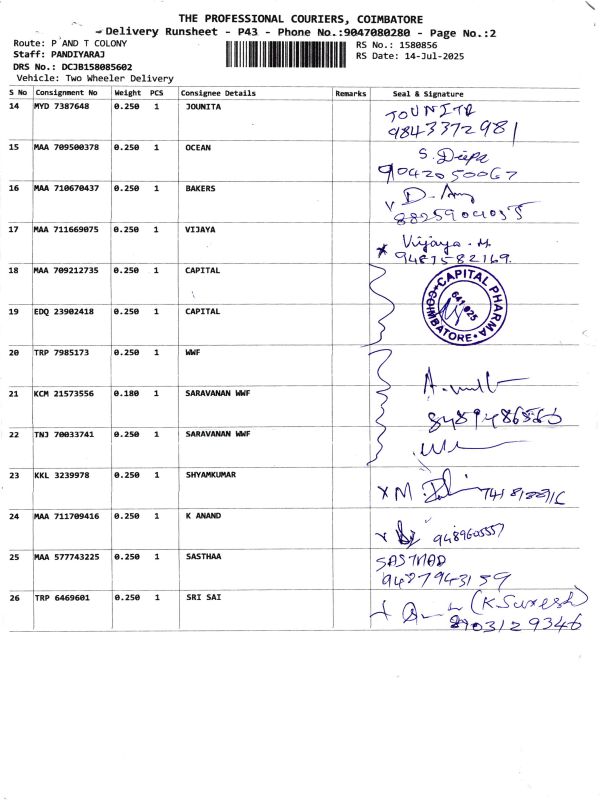 THE PROFESSIONAL COURIERS, COIMBATORE
Delivery Runsheet - P43 - Phone No.:9047080280 - Page No.:2
Route: P AND T COLONY
RS No.: 1580856
Staff: PANDIYARAJ
RS Date: 14-Jul-2025
DRS No.: DCJB158085602
Vehicle: Two Wheeler Delivery
S No Consignment No Weight PCS Consignee Details Remarks Seal & Signature
14 MYD 7387648 0.250 1 JOUNITA JOUNITA
9843372981
15 MAA 709500378 0.250 1 OCEAN S. Deepa
9042050067
16 MAA 710670437 0.250 1 BAKERS
17 MAA 711669075 0.250 1 VIJAYA Vijaya. M
9487582169.
18 MAA 709212735 0.250 1 CAPITAL
CAPITAL PHARMA
641 025
COIMBATORE
19 EDQ 23902418 0.250 1 CAPITAL
20 TRP 7985173 0.250 1 WWF
21 KCM 21573556 0.180 1 SARAVANAN WWF
22 TNJ 70033741 0.250 1 SARAVANAN WWF
23 KKL 3239978 0.250 1 SHYAMKUMAR
24 MAA 711709416 0.250 1 K ANAND
9489605557
25 MAA 577743225 0.250 1 SASTHAA
9427943159
26 TRP 6469601 0.250 1 SRI SAI (K. Suresh)
8903129346